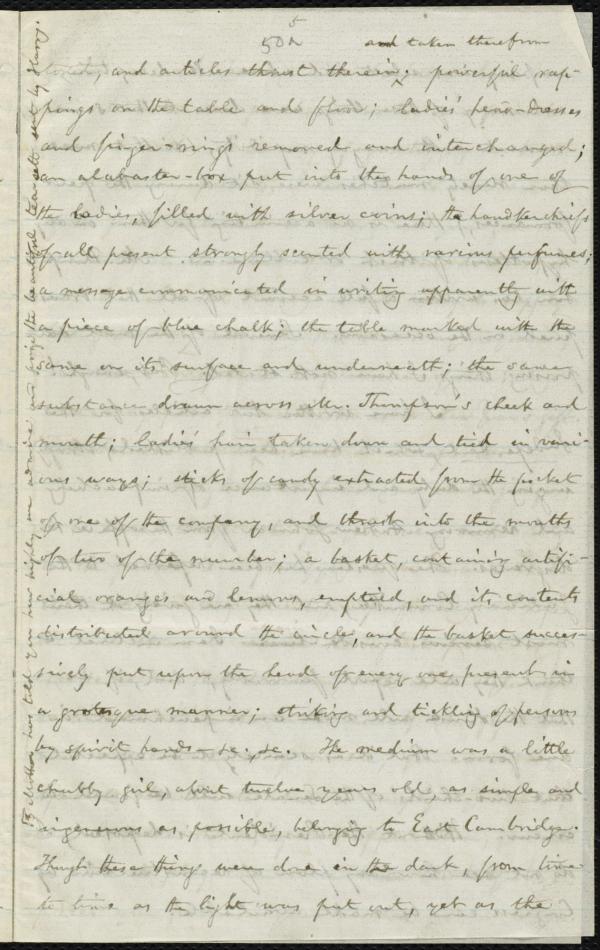 and taken therefrom
and articles thrust therein; powerful rap-
pings on the table and floor; ladies' head-dresses
and finger-rings removed and interchanged;
an alabaster-box put into the hands of one of
the ladies, filled with silver coins; the handkerchiefs
of all present strongly scented with various perfumes;
a message communicated in writing apparently with
a piece of blue chalk; the table marked with the
same on its surface and underneath; the same
substance drawn across Mr. Thompson's cheek and
mouth; ladies' hair taken down and tied in vari-
ous ways; sticks of candy extracted from the pocket
of one of the company, and thrust into the mouths
of two of the number; a basket, containing artifi-
cial oranges and lemons, emptied, and its contents
distributed around the circle, and the basket succes-
sively put upon the head of every one present in
a grotesque manner; striking and tickling of persons
by spirit hands—&c., &c. The medium was a little
chubby girl, about twelve years old, as simple and
ingenuous as possible, belonging to East Cambridge.
Though these things were done in the dark, from time
to time as the light was put out, yet as the
Mother has told you how highly we admire and prize the beautiful tea-sett sent by Harry.